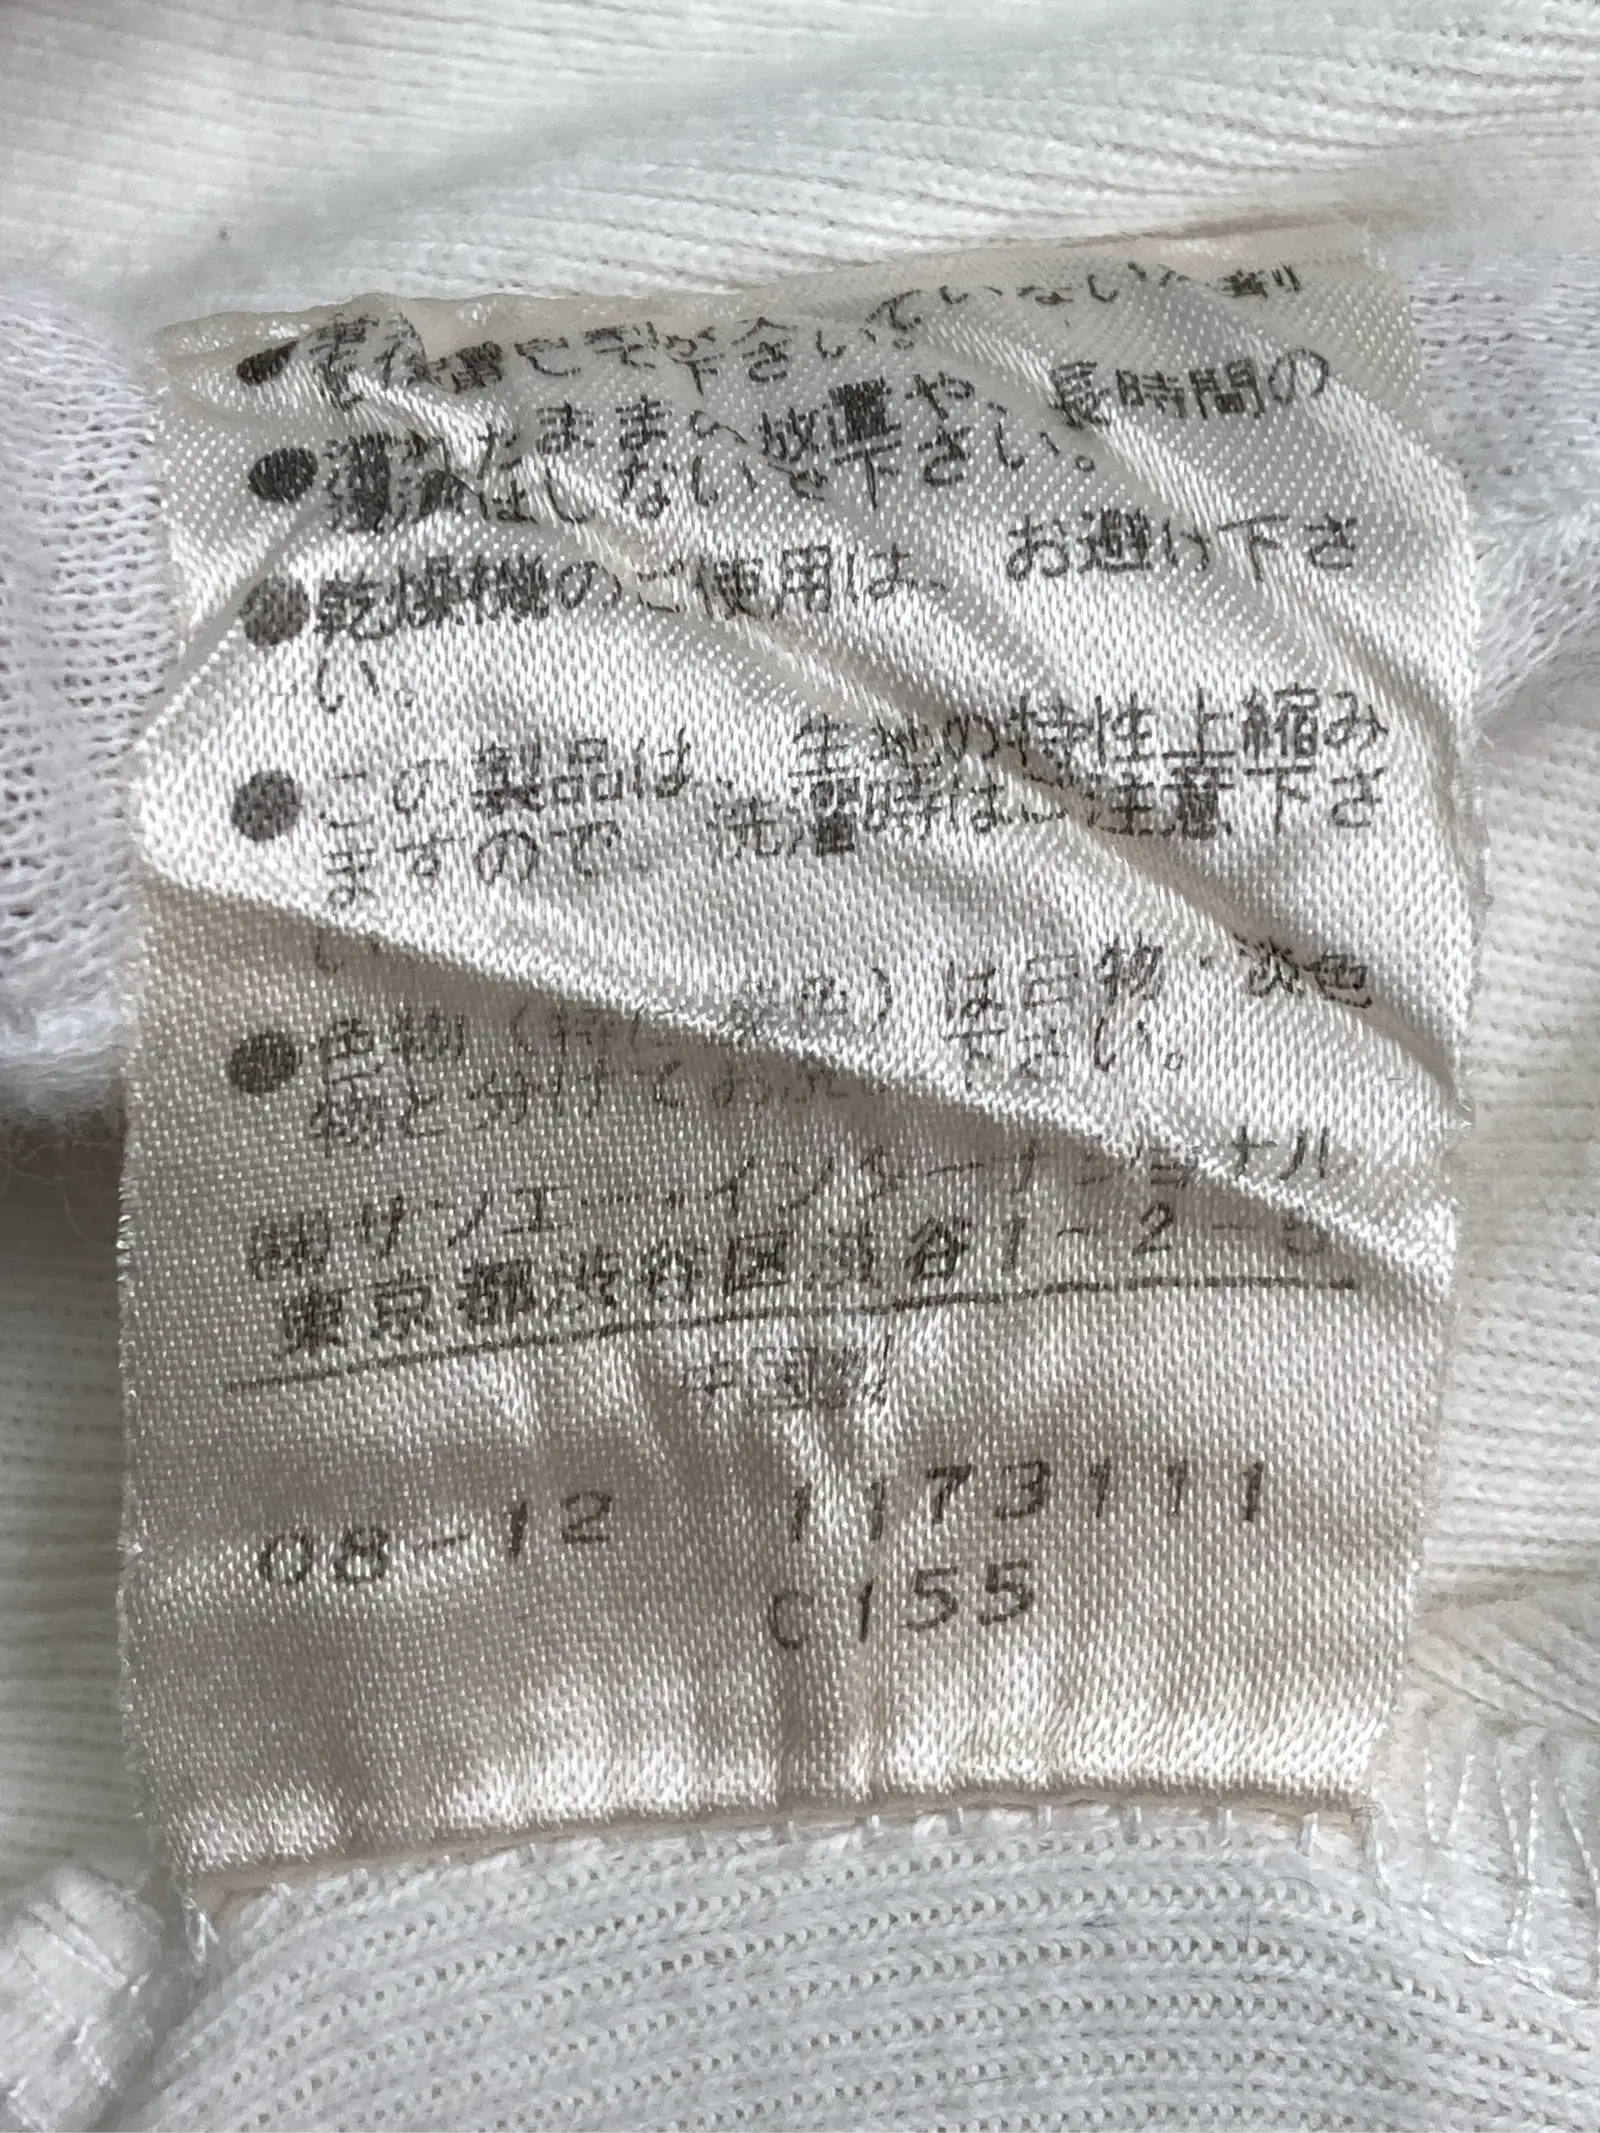 ていない洗剤
をご使用下さい。
●濡れたままの放置や、長時間の
浸漬はしないで下さい。
●乾燥機のご使用は、お避け下さ
い。
●この製品は、生地の特性上縮み
ますので、洗濯時はご注意下さ
い
●色物（特に 色）は白物・淡色
物と分けてお洗 下さい。
㈱サンエー・インターナショナル
東京都渋谷区渋谷1-2-5
中国製
08-12 1173111
C155